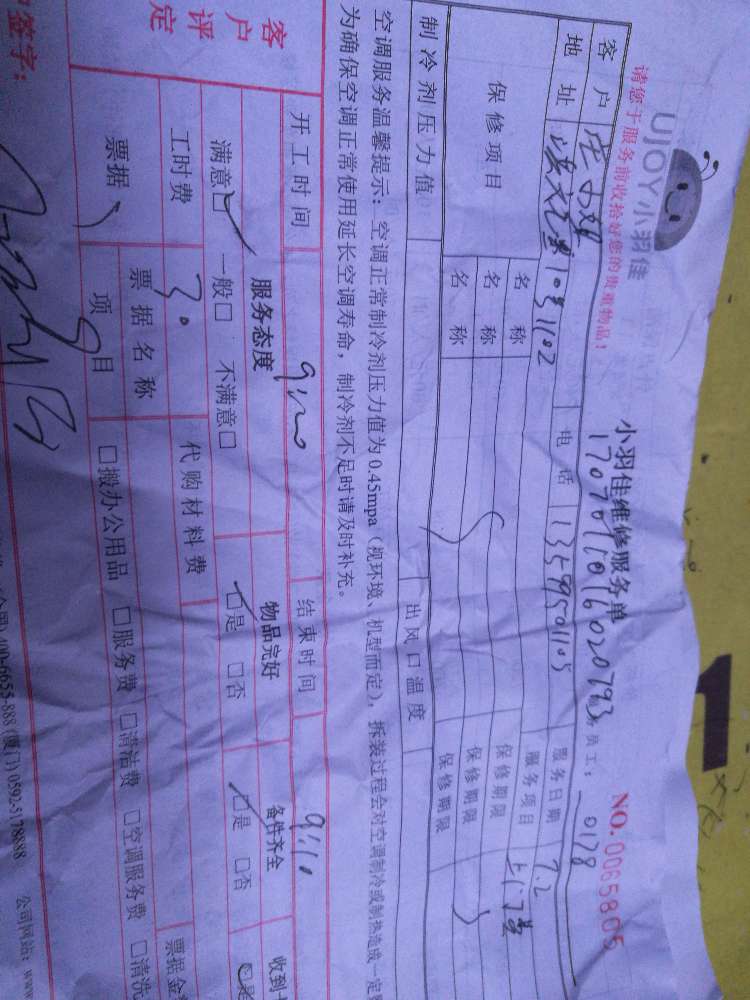 UJOY小羽佳
请您于服务前收拾好您的贵重物品！
小羽佳维修服务单
NO.0065805
员工： 0178
客户
地址 10号1102
电话 13599501105
服务日期 7.2
服务项目 上门费
保修项目 名称 保修期限
名称 保修期限
名称 保修期限
制冷剂压力值 出风口温度
空调服务温馨提示：空调正常制冷剂压力值为0.45mpa（视环境、机型而定），拆装过程会对空调制冷或制热造成一定
为确保空调正常使用延长空调寿命，制冷剂不足时请及时补充。
开工时间 结束时间 9:10
客户评定
服务态度 物品完好 备件齐全 收到
满意□ 一般□ 不满意□ □是 □否 □是 □否 □是
工时费 30 代购材料费
票据 票据名称 票据金
项目 □搬办公用品 □服务费 □清洁费 □空调服务费 □清洗
签字：
400-6655-888(厦门)0592-5178888 公司网站：www